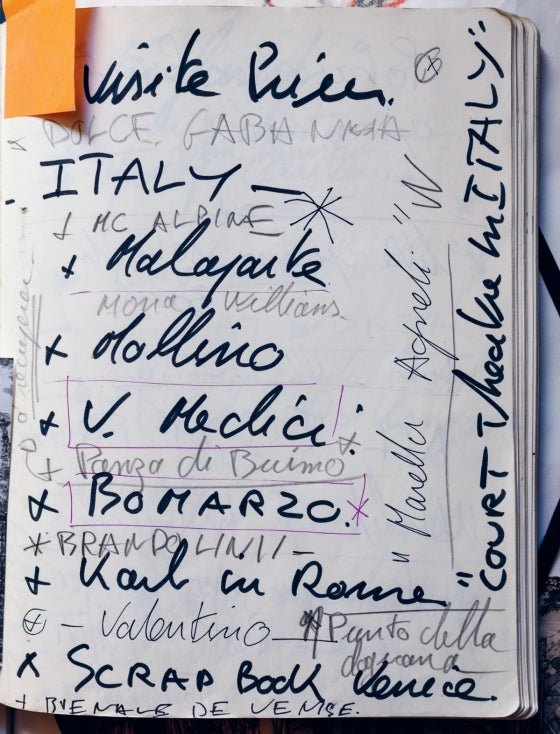 Visite
DOLCE. GABANNA
- ITALY - *
+ MC ALPINE
+ Malaparte
Mona Williams.
+ Mollino
+ V. Medici.
+ Panza di Buimo
+ BOMARZO. *
* BRANDOLINI -
+ Karl in Rome
- Valentino
Punto della
dogana
x SCRAP Book Venice.
+ BIENALE DE VENISE.
"Marella Agneli" W
"COURT Theatre in ITALY"